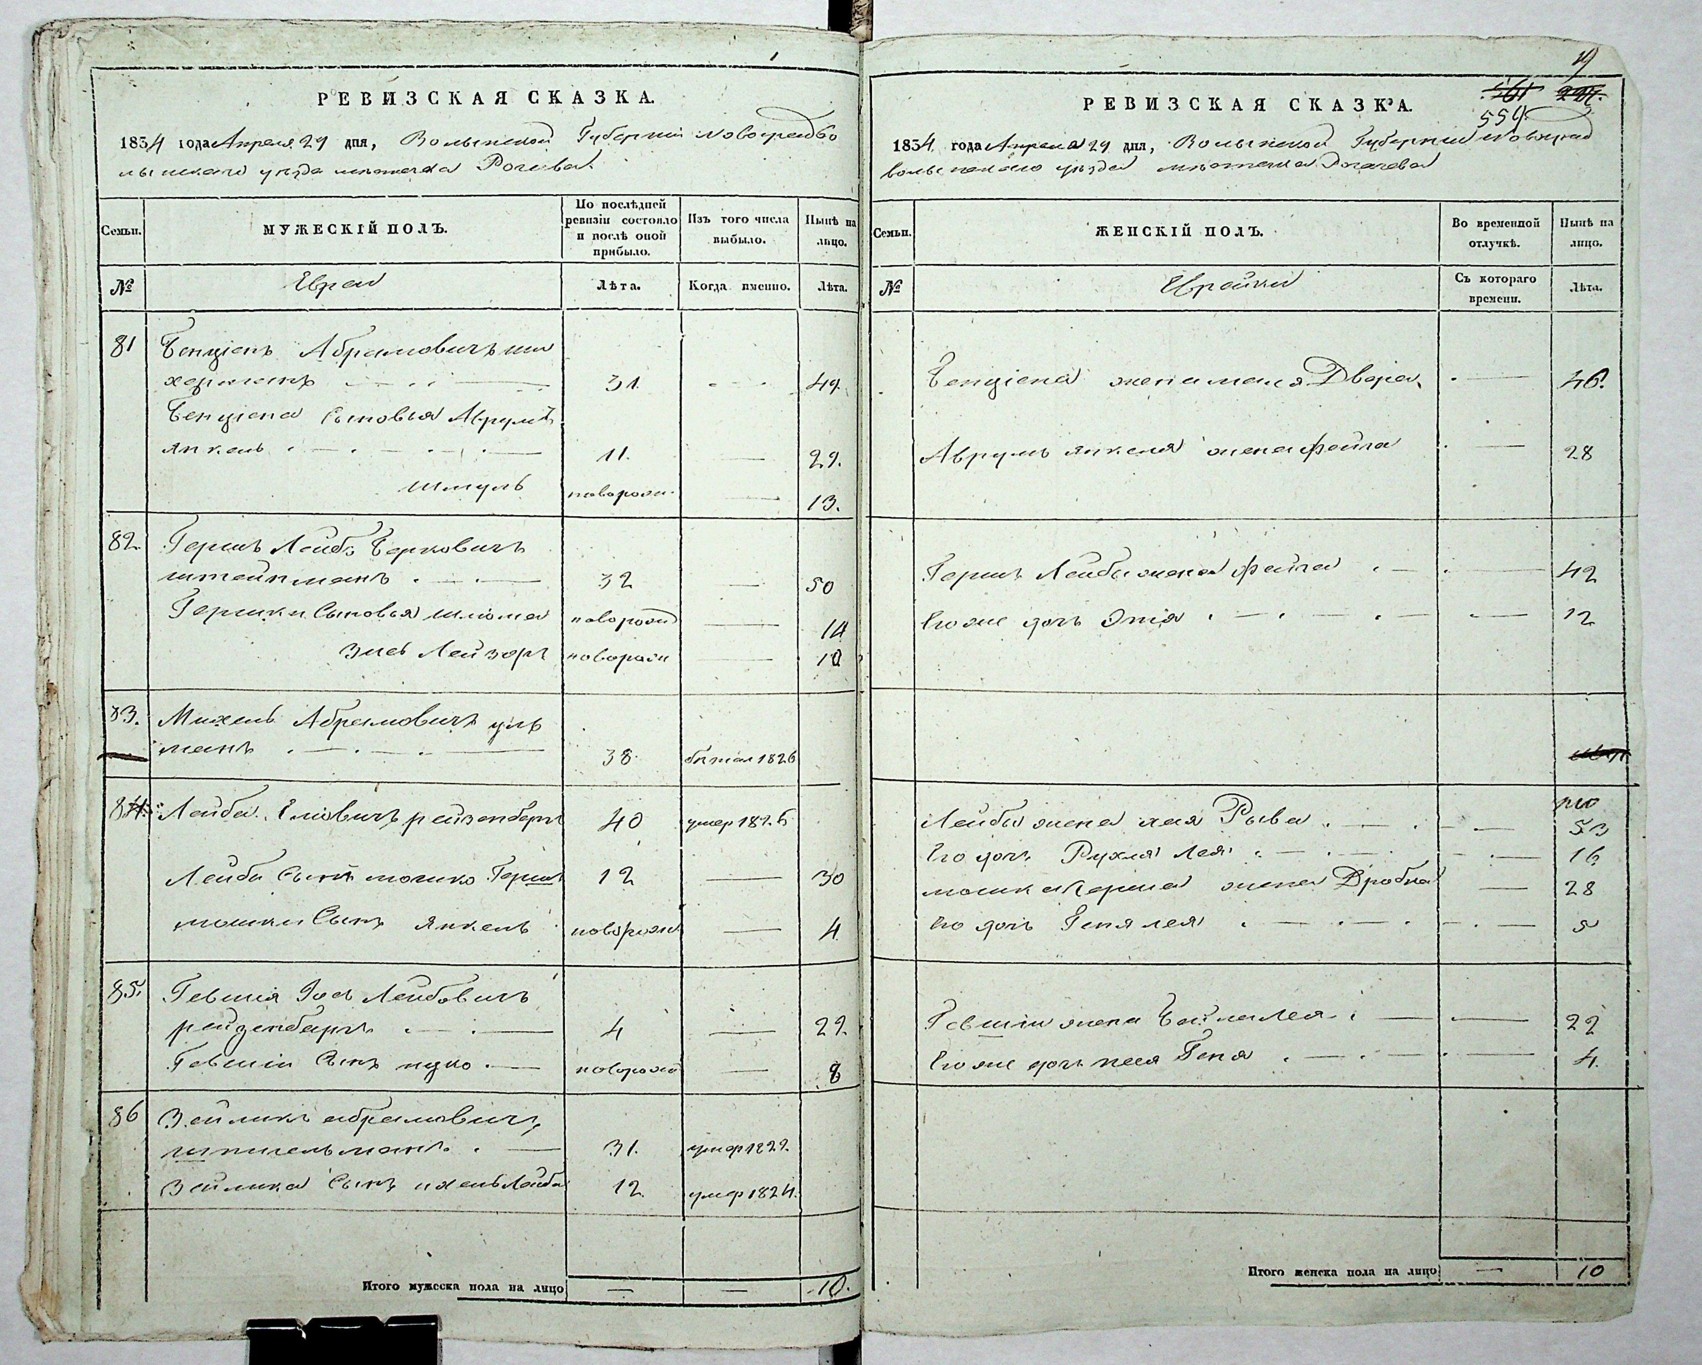 РЕВИЗСКАЯ СКАЗКА.
1834 года Апреля 29 дня, Волынской Губернии Новоградво
лынского уезда местечка Рогачева
Семьи.
МУЖЕСКІЙ ПОЛЪ.
По послѣдней ревизіи состояло и послѣ оной прибыло.
Изъ того числа выбыло.
Нынѣ на лицо.
№
Евреи
Лѣта.
Когда именно.
Лѣта.
81 Бенціенъ Абрамовичъ
31. 49.
Бенціена Сыновья Аврумъ
Янкель 11. 29.
Шмуль новорожд 13.
82. Гершъ Лейба Берковичъ
штейнманъ 32 50
Гершки Сыновья Шлиома новорожд 14
Зусь Лейзоръ новорожд 10
83. Михель Абрамовичъ уль
манъ 38
1826
84. Лейба рейзенбергъ 40 умер 1826
Лейби Сынъ мошко Гершъ 12 30
мошки Сынъ Янкель новорожд 4
85. Гевшія Іось Лейбовичъ
рейзенбергъ 4 22.
Гевшіи Сынъ ицко новорожд 8
86 Зейликъ абрамовичъ
шпигельманъ 31. умер 1822.
Зейлика Сынъ Лейба 12 умер 1824.
Итого мужеска пола на лицо — — 10.
19
РЕВИЗСКАЯ СКАЗКА.
559.
1834 года Апреля 29 дня, Волынской Губернии Новоград
волынского уезда местечка Рогачева
Семьи.
ЖЕНСКІЙ ПОЛЪ.
Во временной отлучкѣ.
Нынѣ на лицо.
№
Еврейки
Съ котораго времени.
Лѣта.
Бенціена жена маля Двора 46.
Аврумъ Янкеля жена фейга 28
Гершъ Лейбы жена фейга 42
Его же дочь Этя 12
Лейбы жена хая Рыва 53
Его дочь Рухля Лея 16
мошка Герша жена Дробна 28
Его дочь Геня лея 5
Гевшіи жена Бейла Лея 22
Его же дочь песя Геня 4.
Итого женска пола на лицо — 10